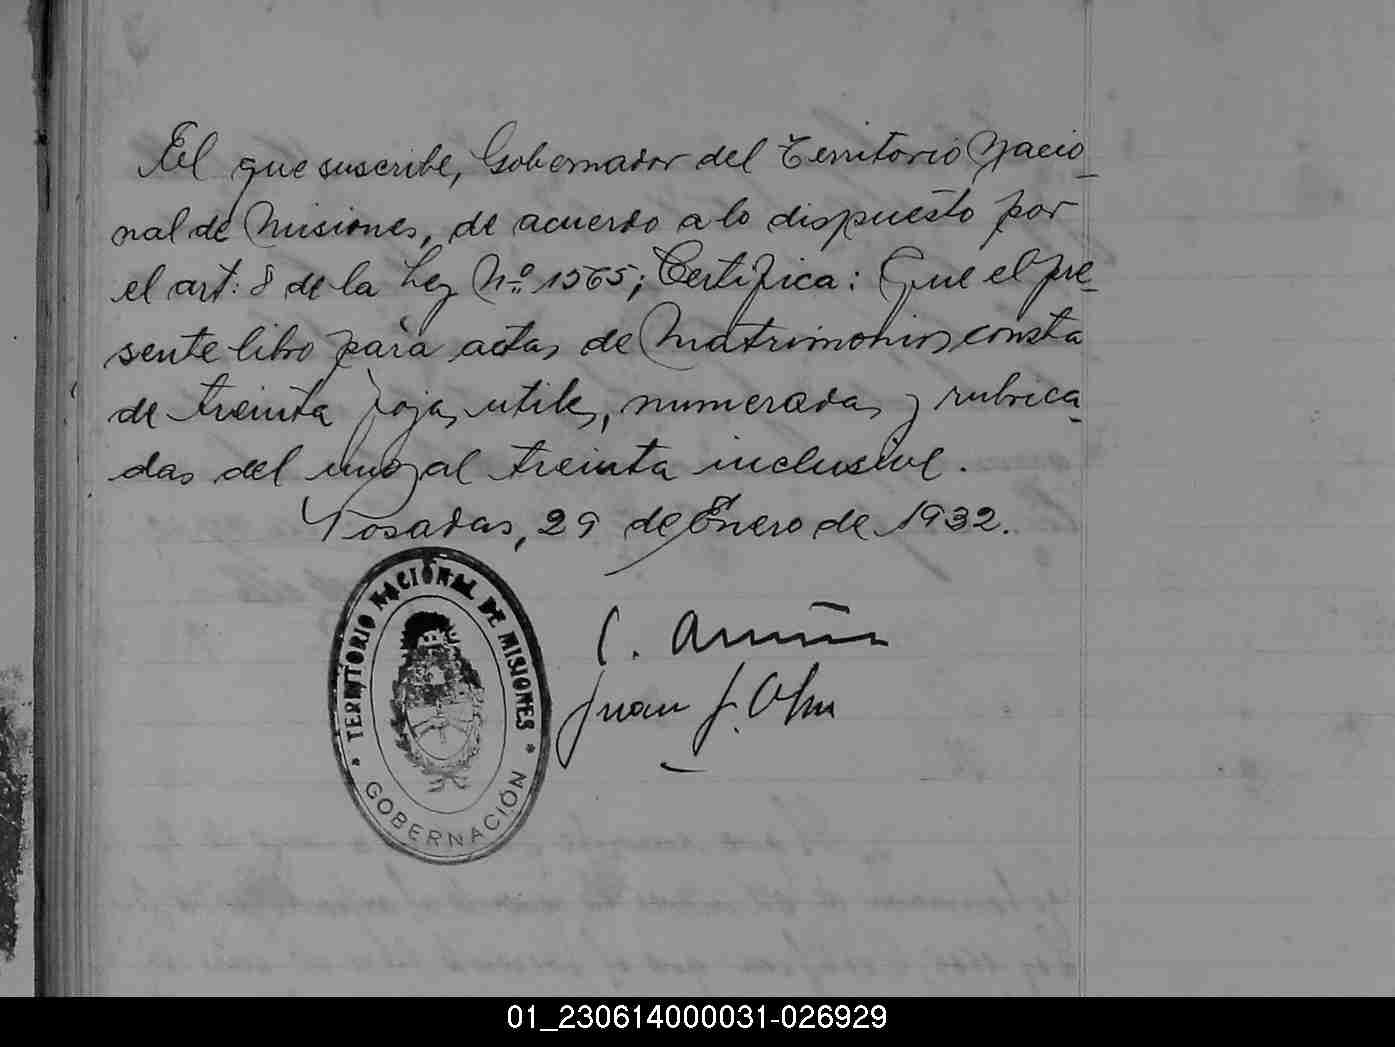 El que suscribe, Gobernador del Territorio Nacio-
nal de Misiones, de acuerdo a lo dispuesto por
el art: 8 de la Ley Nº 1565; Certifica: Que el pre-
sente libro para actas de Matrimonios consta
de treinta fojas utiles, numeradas y rubrica-
das del uno al treinta inclusive.
Posadas, 29 de Enero de 1932.
TERRITORIO NACIONAL DE MISIONES
GOBERNACIÓN
C.
Juan J.
01_230614000031-026929